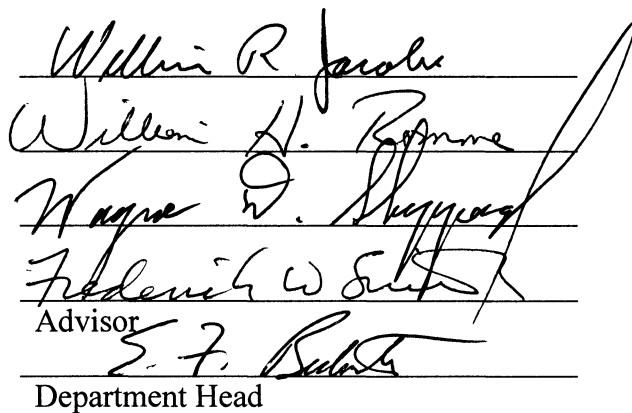 William R. Jacobi
William H. Romme
Wayne D. Shepperd
Frederick W Smith
Advisor
E. F.
Department Head